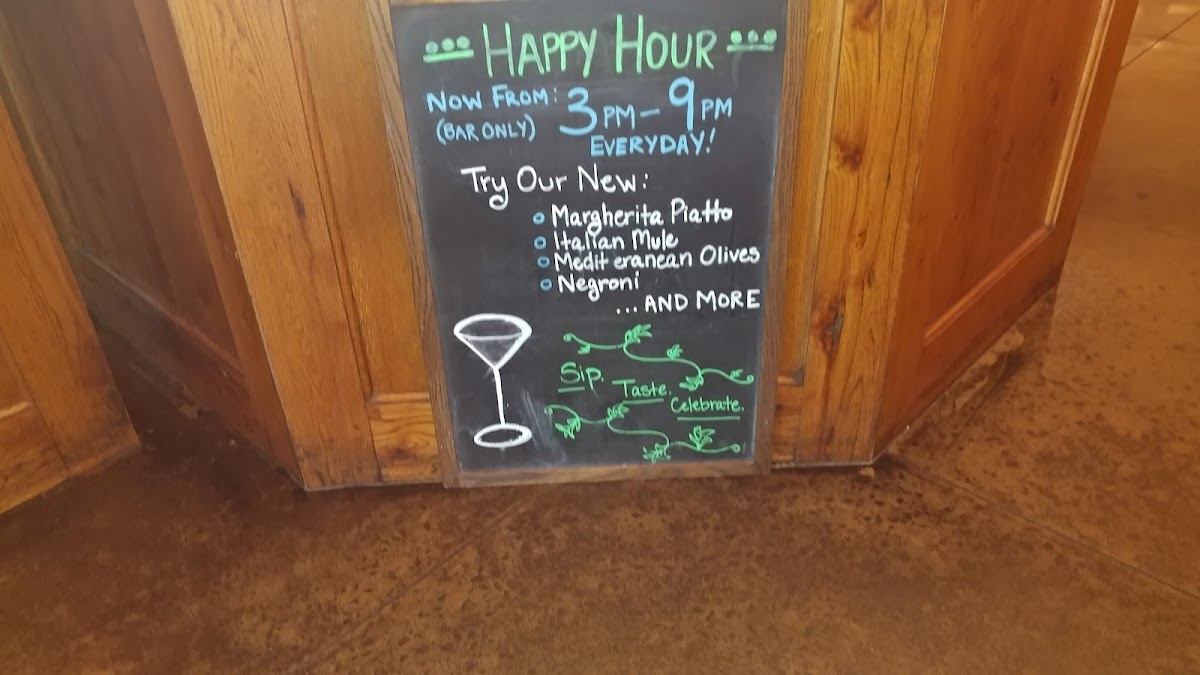 HAPPY HOUR
NOW FROM: 3PM – 9PM
(BAR ONLY) EVERYDAY!
Try Our New:
Margherita Piatto
Italian Mule
Mediteranean Olives
Negroni
...AND MORE
Sip.
Taste.
Celebrate.